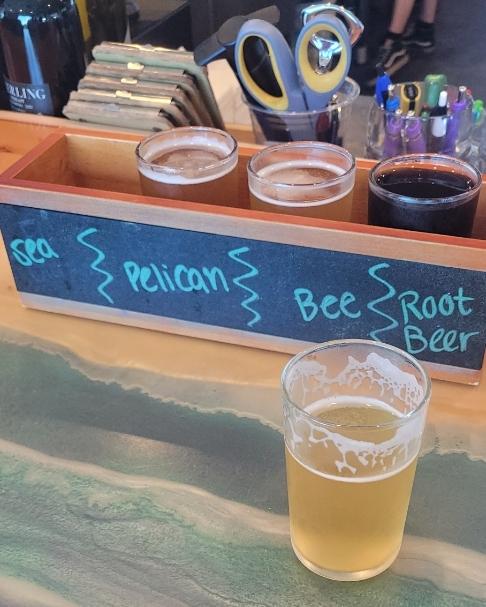 ERLING
sea
Pelican
Bee
Root
Beer